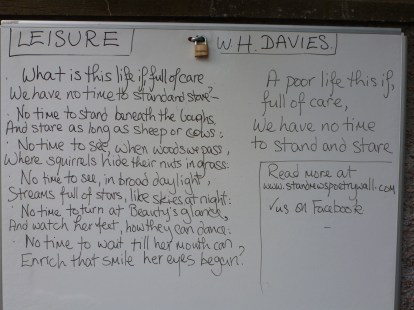 LEISURE
W.H. DAVIES.
What is this life if, full of care
We have no time to stand and stare?-
No time to stand beneath the boughs,
And stare as long as sheep or cows:
No time to see, when woods we pass,
Where squirrels hide their nuts in grass:
No time to see, in broad daylight,
Streams full of stars, like skies at night:
No time to turn at Beauty's glance,
And watch her feet, how they can dance:
No time to wait till her mouth can
Enrich that smile her eyes began?
A poor life this if,
full of care,
We have no time
to stand and stare
Read more at
www.standmewspoetrywall.com
✓us on Facebook